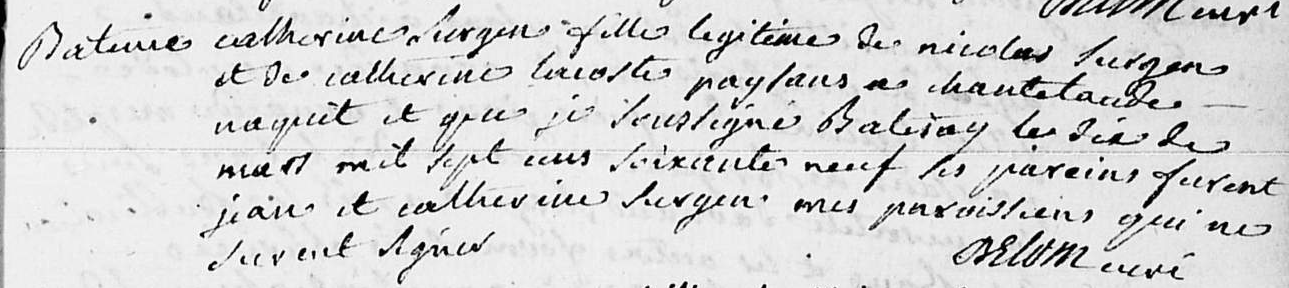 Delom curé
Bateme catherine surgen fille legitime de nicolas surgen
et de catherine lacoste paysans a chantelaude
naquit et que je soussigné Batisay le dix de
mars mil sept cens soixante neuf ses pareins furent
jean et catherine surgen mes paroissiens qui ne
surent signer
Delom curé